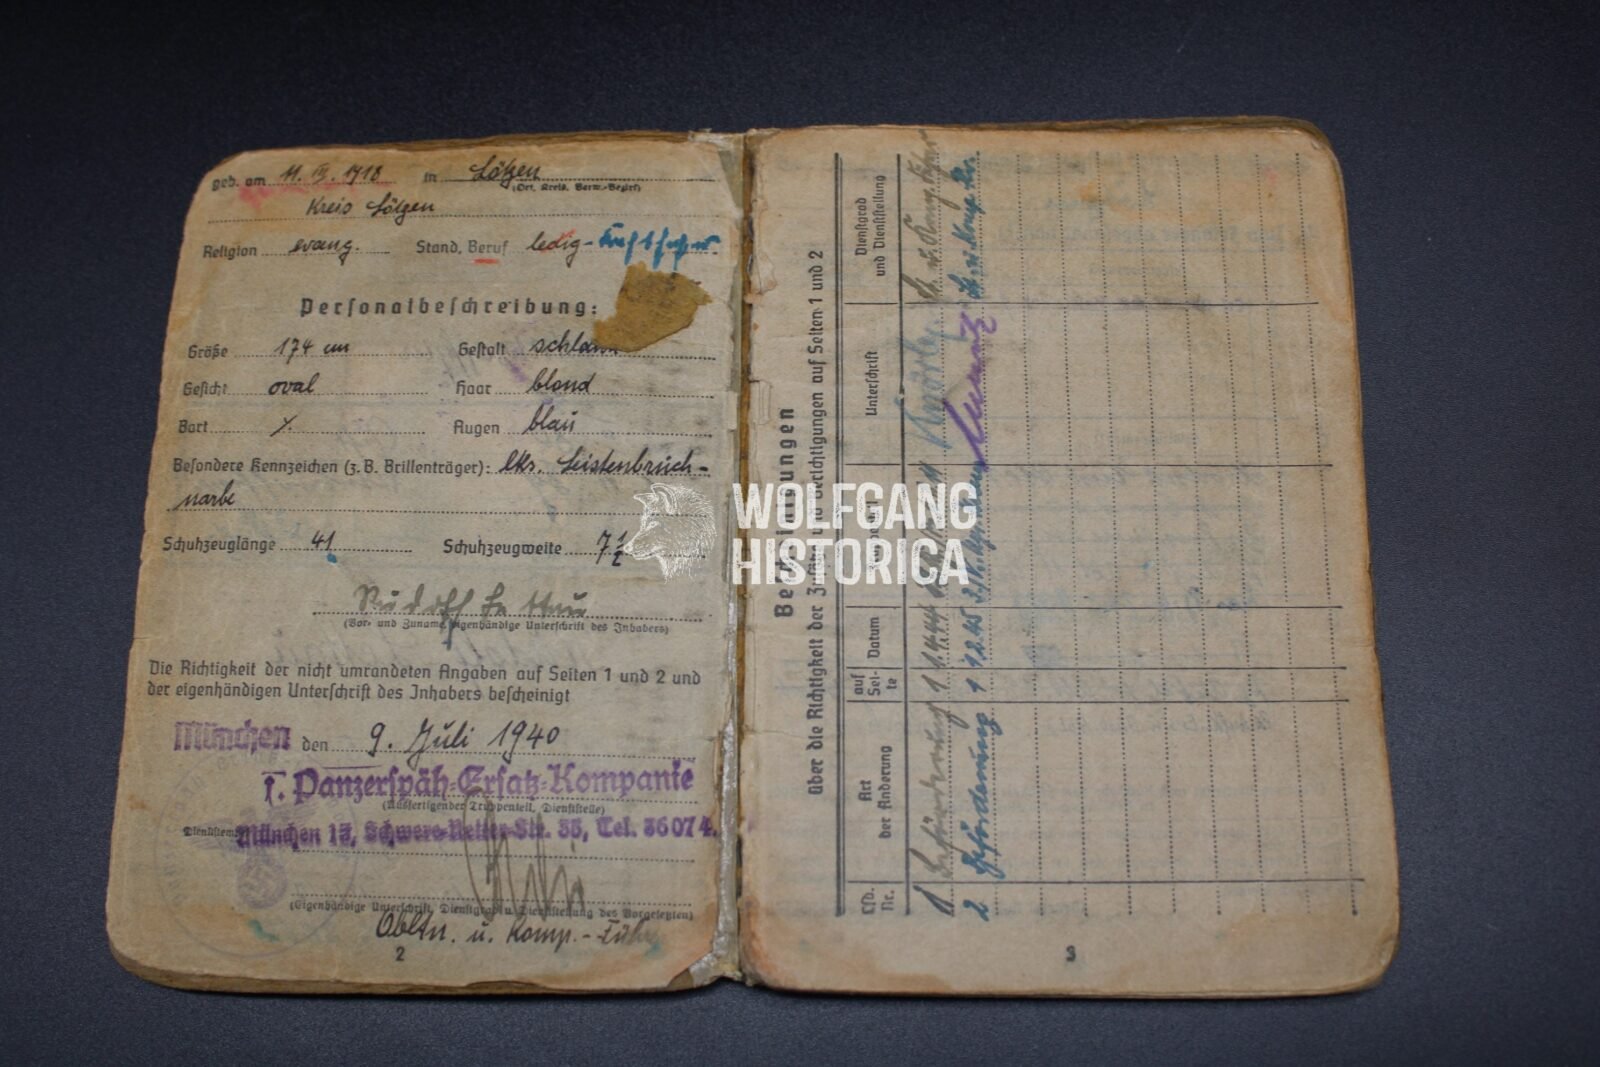 geb. am 11. IV. 1918 in Lötzen
(Ort, Kreis, Verw.-Bezirk)
Kreis Lötzen
Religion evang. Stand, Beruf ledig -
Personalbeschreibung:
Größe 174 cm Gestalt
Gesicht oval Haar blond
Bart Augen blau
Besondere Kennzeichen (z. B. Brillenträger): lks. Leistenbruch-
narbe
Schuhzeuglänge 41 Schuhzeugweite 7 1/2
Rudolf
(Vor- und Zuname, eigenhändige Unterschrift des Inhabers)
Die Richtigkeit der nicht umrandeten Angaben auf Seiten 1 und 2 und
der eigenhändigen Unterschrift des Inhabers bescheinigt
München den 9. Juli 1940
Panzerspäh-Ersatz-Kompanie
(Ausfertigender Truppenteil, Dienststelle)
München 13, Schwere-Reiter-Str. 35, Tel. 36074
(Eigenhändige Unterschrift, Dienstgrad u. Dienststellung des Vorgesetzten)
Obltn. u. Komp.-Führer
2
Bescheinigungen
über die Richtigkeit der Zusätze und Berichtigungen auf Seiten 1 und 2
Lfd. Nr.
Art der Änderung
auf Sei- te
Datum
Unterschrift
Dienstgrad und Dienststellung
1 Beförderung 1
2 Beförderung 1
3
WOLFGANG
HISTORICA